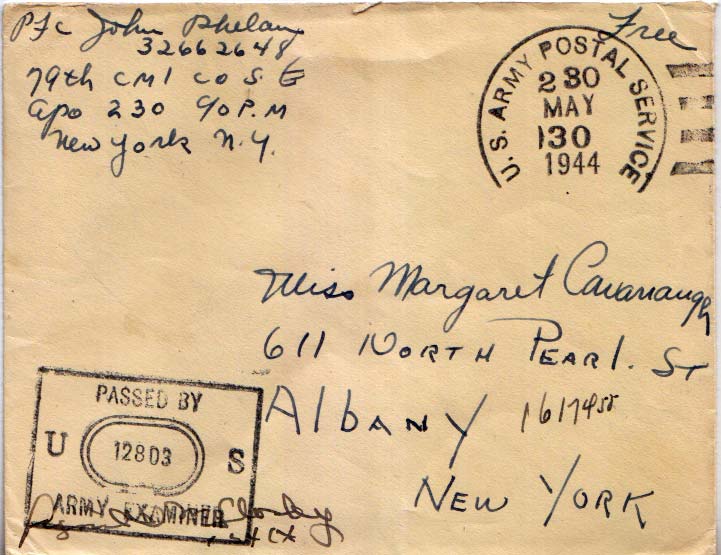 Pfc John Phelan
32662648
79th CML CO S G
apo 230 ℅ P.M
New York N.Y.
Free
U.S. ARMY POSTAL SERVICE
230
MAY
30
1944
Miss Margaret Cavanaugh
611 NORTH PEARL. ST
Albany
NEW YORK
PASSED BY
U 12803 S
ARMY EXAMINER